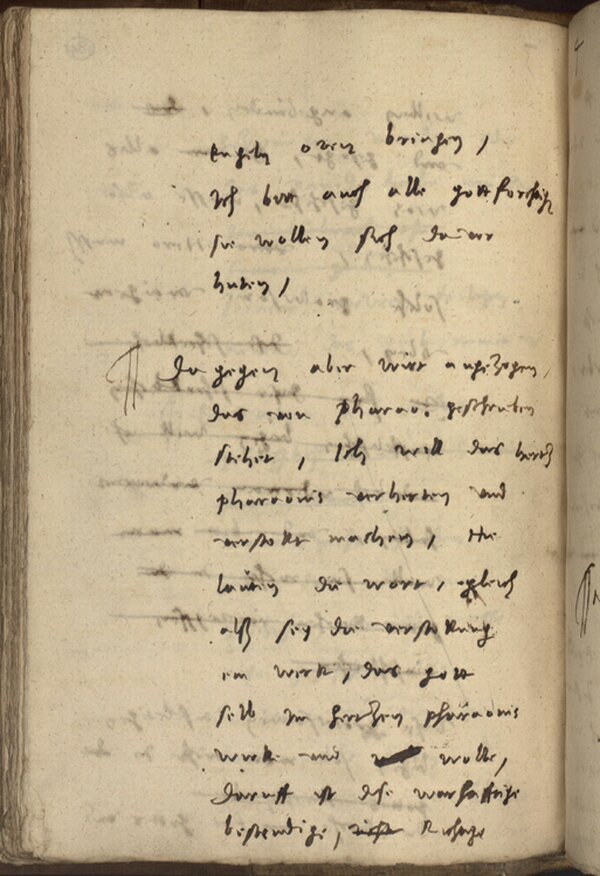 engeln oren bringen,
Ich bitt auch alle gottforchtige
sie wollen sich da vor
huten,
Da gegen aber wirt angezogen,
das von pharao: geschriben
stehet, Ich will das hertz
pharaonis verherten und
verstokt machen, Hie
lauten die wort, gleich
alß sey die verstokung
ein werk, das gott
selb im hertzen pharaonis
wirke und wolle,
daruff ist dise warhafftige
bestendige, richtige